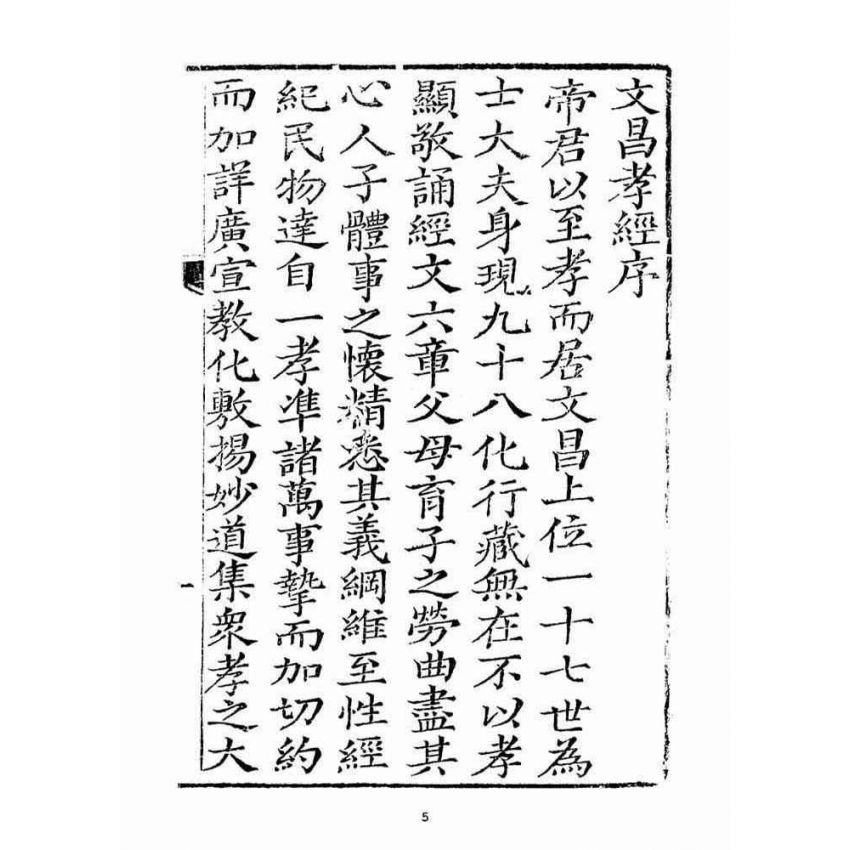 文昌孝經序
帝君以至孝而居文昌上位一十七世為
士大夫身現九十八化行藏無在不以孝
顯敬誦經文六章父母育子之勞曲盡其
心人子體事之懷精悉其義綱維至性經
紀民物達自一孝準諸萬事摯而加切約
而加詳廣宣教化敷揚妙道集眾孝之大
一
5